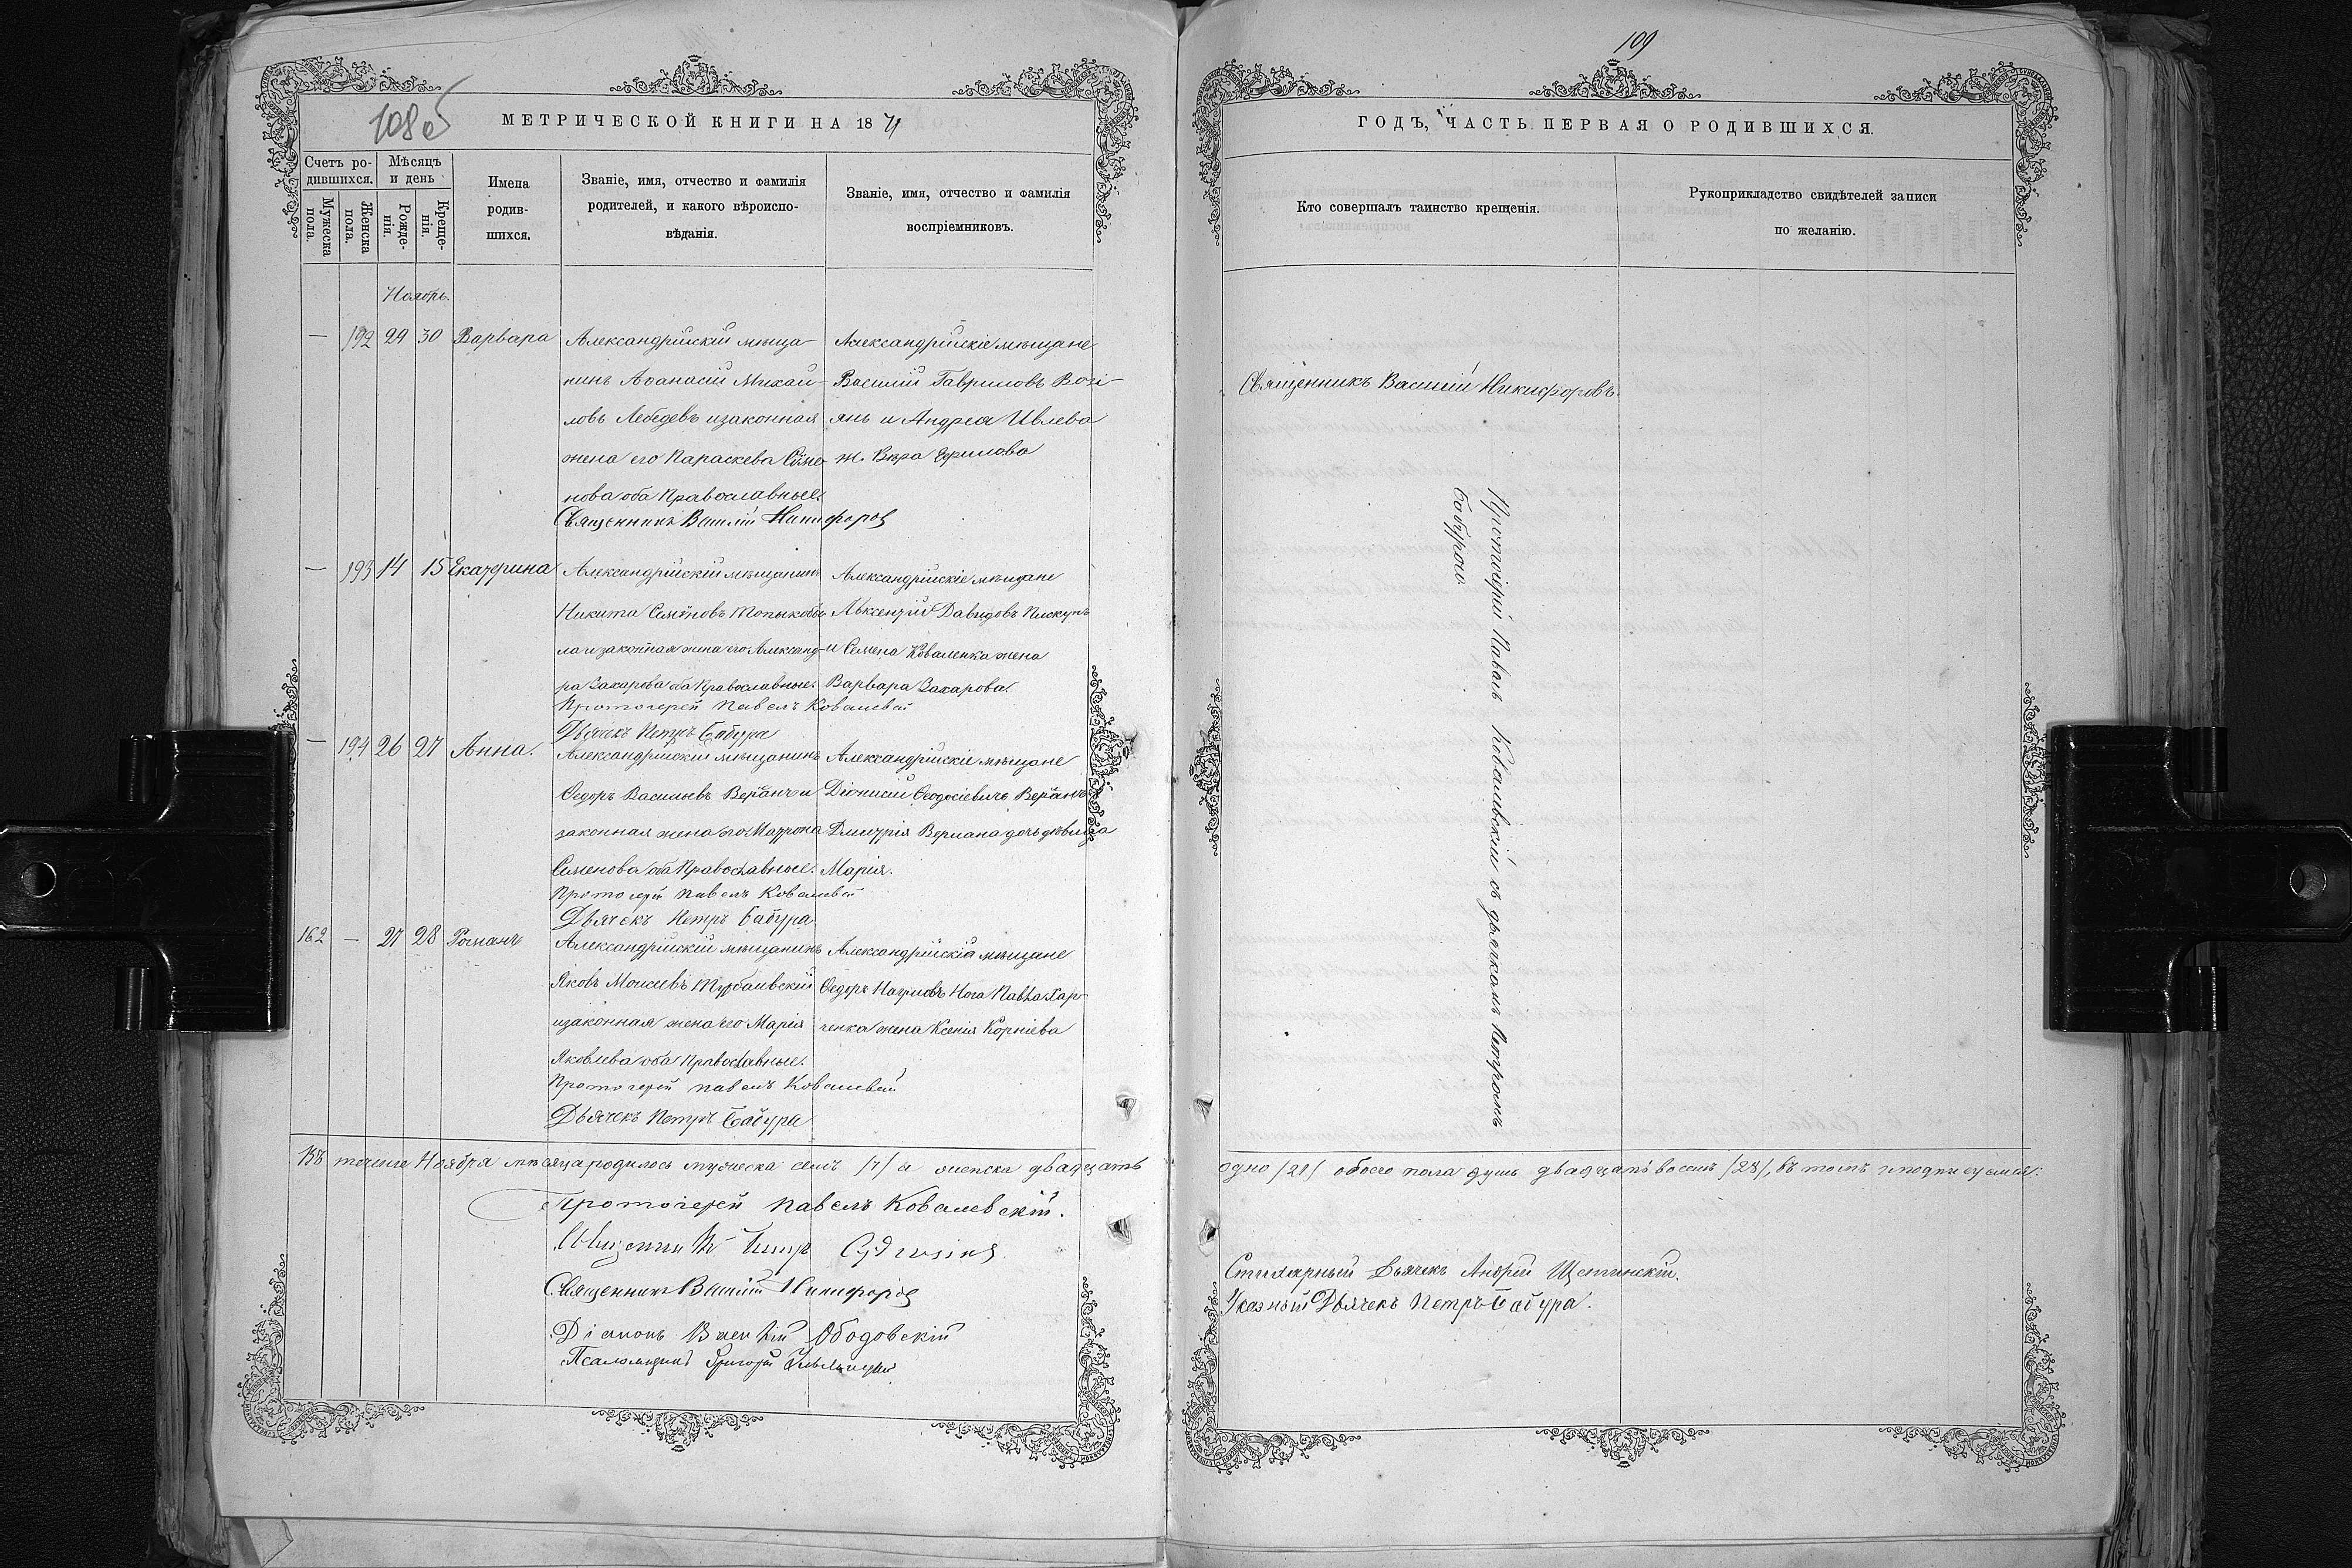 108об
МЕТРИЧЕСКОЙ КНИГИ НА 1871
Счетъ ро-
дившихся.
Мужеска
пола.
Женска
пола.
Мѣсяцъ
и день
Рожде-
нія.
Креще-
нія.
Имена
родив-
шихся.
Званіе, имя, отчество и фамилія
родителей, и какого вѣроиспо-
вѣданія.
Званіе, имя, отчество и фамилія
воспріемниковъ.
Ноябрь.
— 192 29 30 Варвара
Александрійскій мѣща-
нинъ Аѳанасій Михай-
ловъ Лебедевъ и законная
жена его Параскева Симо-
нова оба Православные.
Священникъ Василій Никифоровъ
Александрійскіе мѣщане
Василій Гавриловъ Возі-
янъ и Андрея Ивлева
ж. Вѣра Ефимова
— 193 14 15 Екатерина
Александрійскій мѣщанинъ
Никита Семёновъ
ла и законная жена его Александ-
ра Захарова оба Православные.
Протоіерей Павелъ Ковалевскій
Дьячекъ Петръ Бабура
Александрійскіе мѣщане
Авксентій Давидовъ Пискунъ
и Семена Коваленка жена
Варвара Захарова.
— 194 26 27 Анна.
Александрійскій мѣщанинъ
Ѳедоръ Васильевъ Верланъ и
законная жена его Матрона
Семенова оба Православные.
Протоіерей Павелъ Ковалевскій
Дьячекъ Петръ Бабура
Александрійскіе мѣщане
Діонисій Ѳеодосіевичъ Верланъ
Дмитрія Верлана дочь дѣвица
Марія.
162 — 27 28 Романъ
Александрійскій мѣщанинъ
Яковъ Моисеевъ Турбаивскій
и законная жена его Марія
Яковлева оба Православные.
Протоіерей Павелъ Ковалевскій
Дьячекъ Петръ Бабура
Александрійскіе мѣщане
Ѳедоръ Наумовъ Нога Павла Хар-
ченка жена Ксенія Корніева
Въ теченіе Ноября мѣсяца родилось мужеска семь /7/ а женска двадцать
Протоіерей Павелъ Ковалевскій.
Священникъ Петръ
Священникъ Василій Никифоровъ
Діаконъ Василій Ободовскій
Псаломщикъ Григорій
109
ГОДЪ, ЧАСТЬ ПЕРВАЯ О РОДИВШИХСЯ.
Кто совершалъ таинство крещенія.
Рукоприкладство свидѣтелей записи
по желанію.
Священникъ Василій Никифоровъ.
Протоіерей Павелъ Ковалевскій съ дьячкомъ Петромъ
Бабурою.
одно /21/ обоего пола душъ двадцать восемь /28/, въ томъ и подписуемся:
Стихарный Дьячекъ Андрей Щетинскій.
Указный Дьячекъ Петръ Бабура.